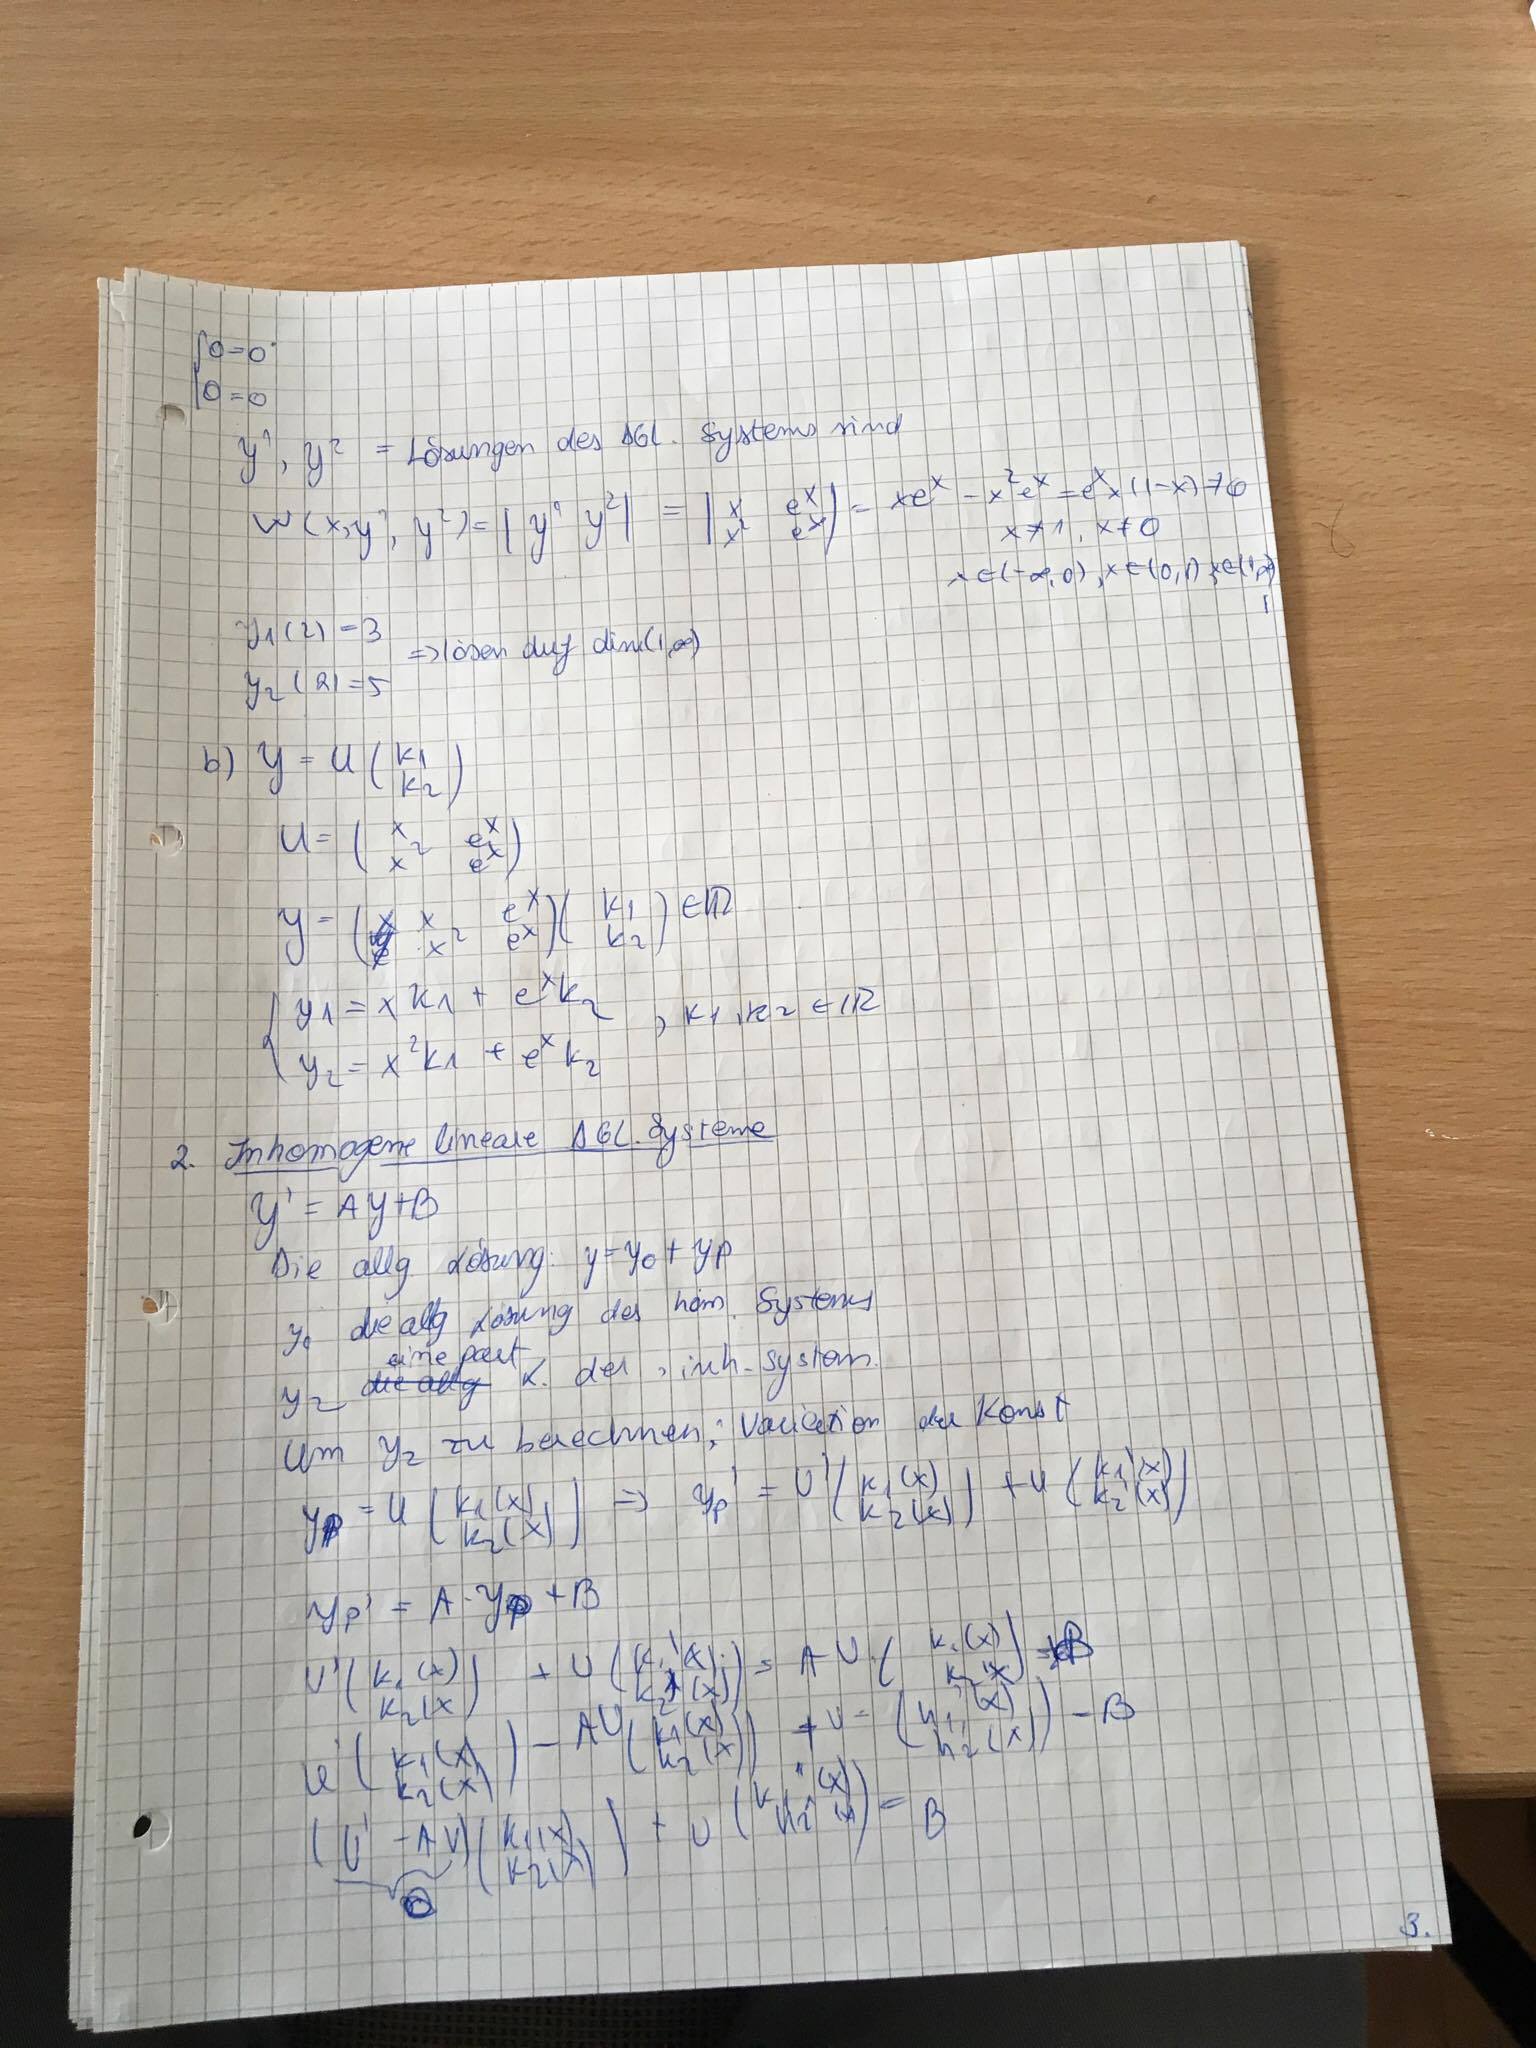 { 0 = 0
0 = 0
y¹, y² = Lösungen des DGL. Systems sind
W(x, y¹, y²) = | y¹ y² | = | x e^x ; x² e^x | = xe^x - x²e^x = e^x x(1-x) ≠ 0
x ≠ 1, x ≠ 0
x ∈ (-∞, 0), x ∈ (0, 1), x ∈ (1, ∞)
y1(2) = 3
⇒ lösen auf dim(1, ∞)
y2(2) = 5
b) y = U (k1 ; k2)
U = (x e^x ; x² e^x)
y = (x e^x ; x² e^x)(k1 ; k2) ∈ IR
{ y1 = x k1 + e^x k2
, k1, k2 ∈ IR
y2 = x² k1 + e^x k2
2. Inhomogene lineare DGL. Systeme
y' = Ay + B
Die allg Lösung: y = y0 + yp
y0 die allg Lösung des hom. Systems
eine part
y2 die allg L. des inh. System.
Um y2 zu berechnen, Variation der Konst
yp = U (k1(x) ; k2(x)) ⇒ yp' = U' (k1(x) ; k2(x)) + U (k1'(x) ; k2'(x))
yp' = A · yp + B
U' (k1(x) ; k2(x)) + U (k1'(x) ; k2'(x)) = A U · (k1(x) ; k2(x)) + B
U' (k1(x) ; k2(x)) - AU (k1(x) ; k2(x)) + U = (k1'(x) ; k2'(x)) - B
(U' - AU) (k1(x) ; k2(x)) + U (k1'(x) ; k2'(x)) = B
0
3.